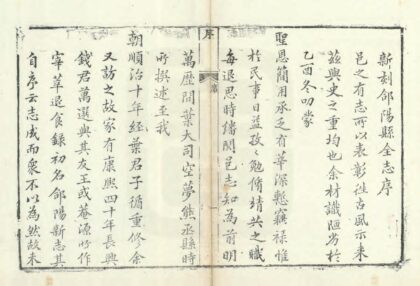 新刻郃陽縣全志序
邑之有志所以表彰徃古風示來
茲與史之重均也余材識陋劣於
乙酉冬叨蒙
聖恩簡用承乏有莘深慙竊祿惟
於民事日益孜勉脩靖共之職
每退思時繙閱邑志知為前明
序
萬歷間葉大司空夢熊丞縣時
所撰述至我
朝順治十年經葉君子循重修余
又訪之故家有康熙四十年長興
錢君萬選與其友王或菴源所作
宰莘退食錄初名郃陽新志其
自序云志成而衆不以為然故未